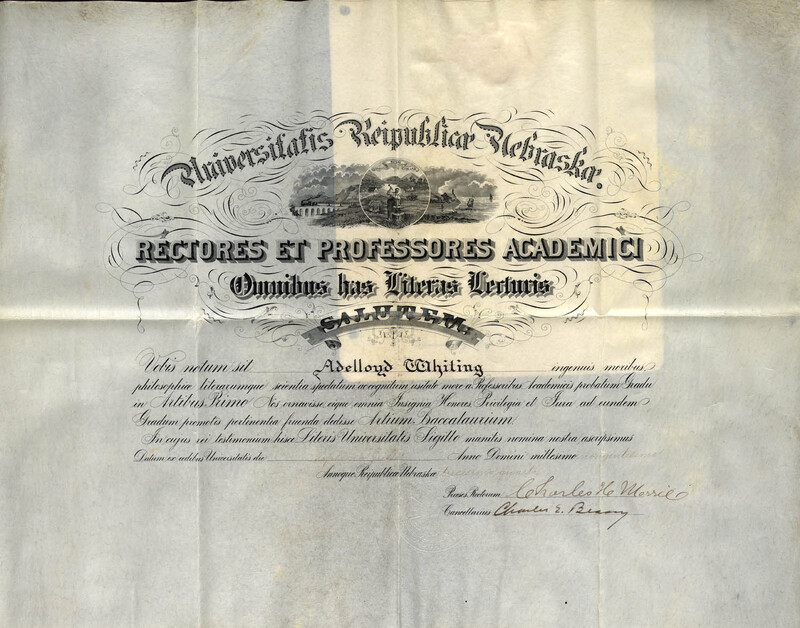 Universitatis Reipublicæ Nebraskæ.
RECTORES ET PROFESSORES ACADEMICI
Omnibus has Literas Lecturis
SALUTEM.
Vobis notum sit Adelloyd Whiting ingenuis moribus,
philosophiæ literarumque scientia spectatum ac cognitum usitato more a Professoribus Academicis probatum Gradu
in Artibus Primo Nos ornavisse, eique omnia Insignia Honores Privilegia et Jura ad eundem
Gradum promotis pertinentia fruenda dedisse Artium Baccalaureum.
In cujus rei testimonium hisce Literis Universitatis Sigillo munitis nomina nostra
Datum ex ædibus Universitatis die Anno Domini millesimo
Annoque Reipublicæ Nebraskæ
Præses Rectorum Charles H. Morrill
Cancellarius Charles E. Bessey